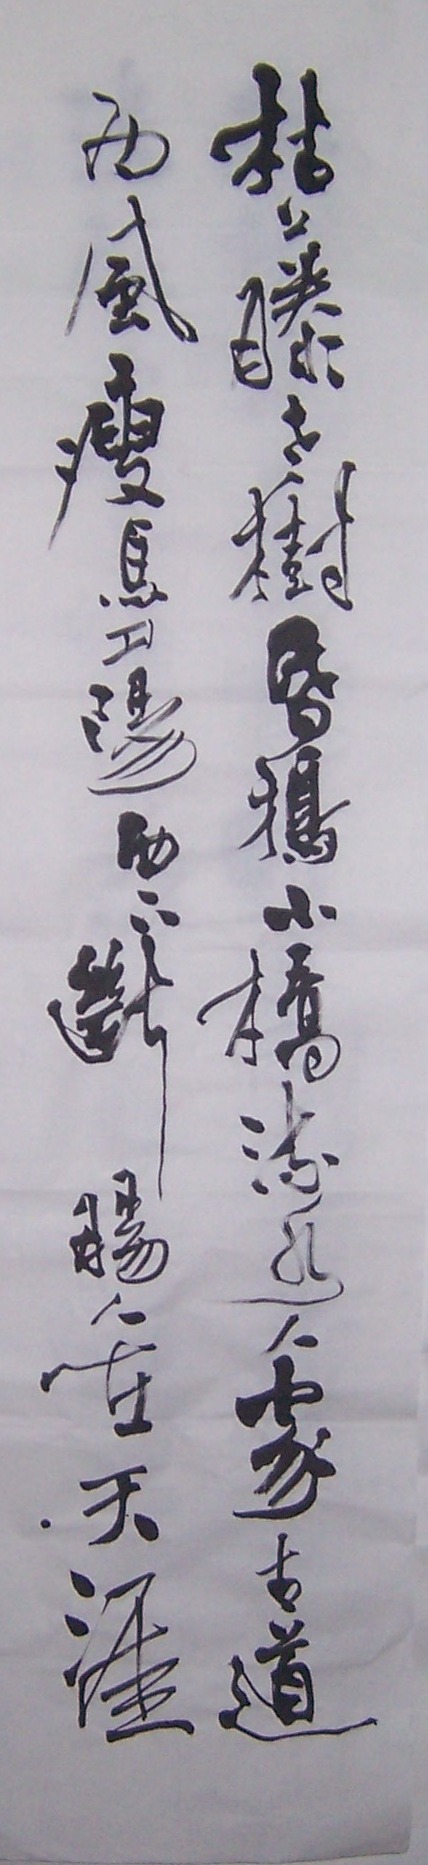 枯藤老樹昏鴉小橋流水人家古道
西風瘦馬夕陽西下斷腸人在天涯